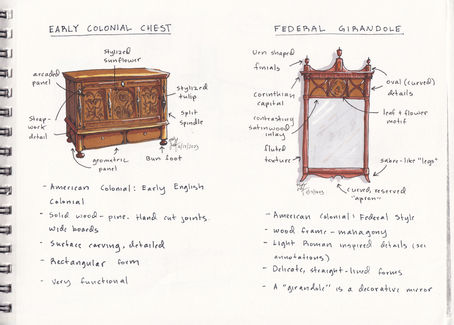 EARLY COLONIAL CHEST
stylized
sunflower
arcaded
panel
stylized
tulip
Split
spindle
Strap-
work
detail
geometric
panel
Bun foot
- American Colonial: Early English
Colonial
- Solid wood- pine. Hand cut joints.
wide boards
- Surface carving, detailed
- Rectangular form
- very functional
FEDERAL GIRANDOLE
urn shaped
finials
oval (curved)
details
corinthian
capital
contrasting
satinwood
inlay
leaf & flower
motif
fluted
texture
sabre-like "legs"
curved, reserved
"apron"
- American Colonial: Federal Style
- wood frame - mahogany
- Light Roman inspired details (see
annotations)
- Delicate, straight-lined forms
- A "girandole" is a decorative mirror